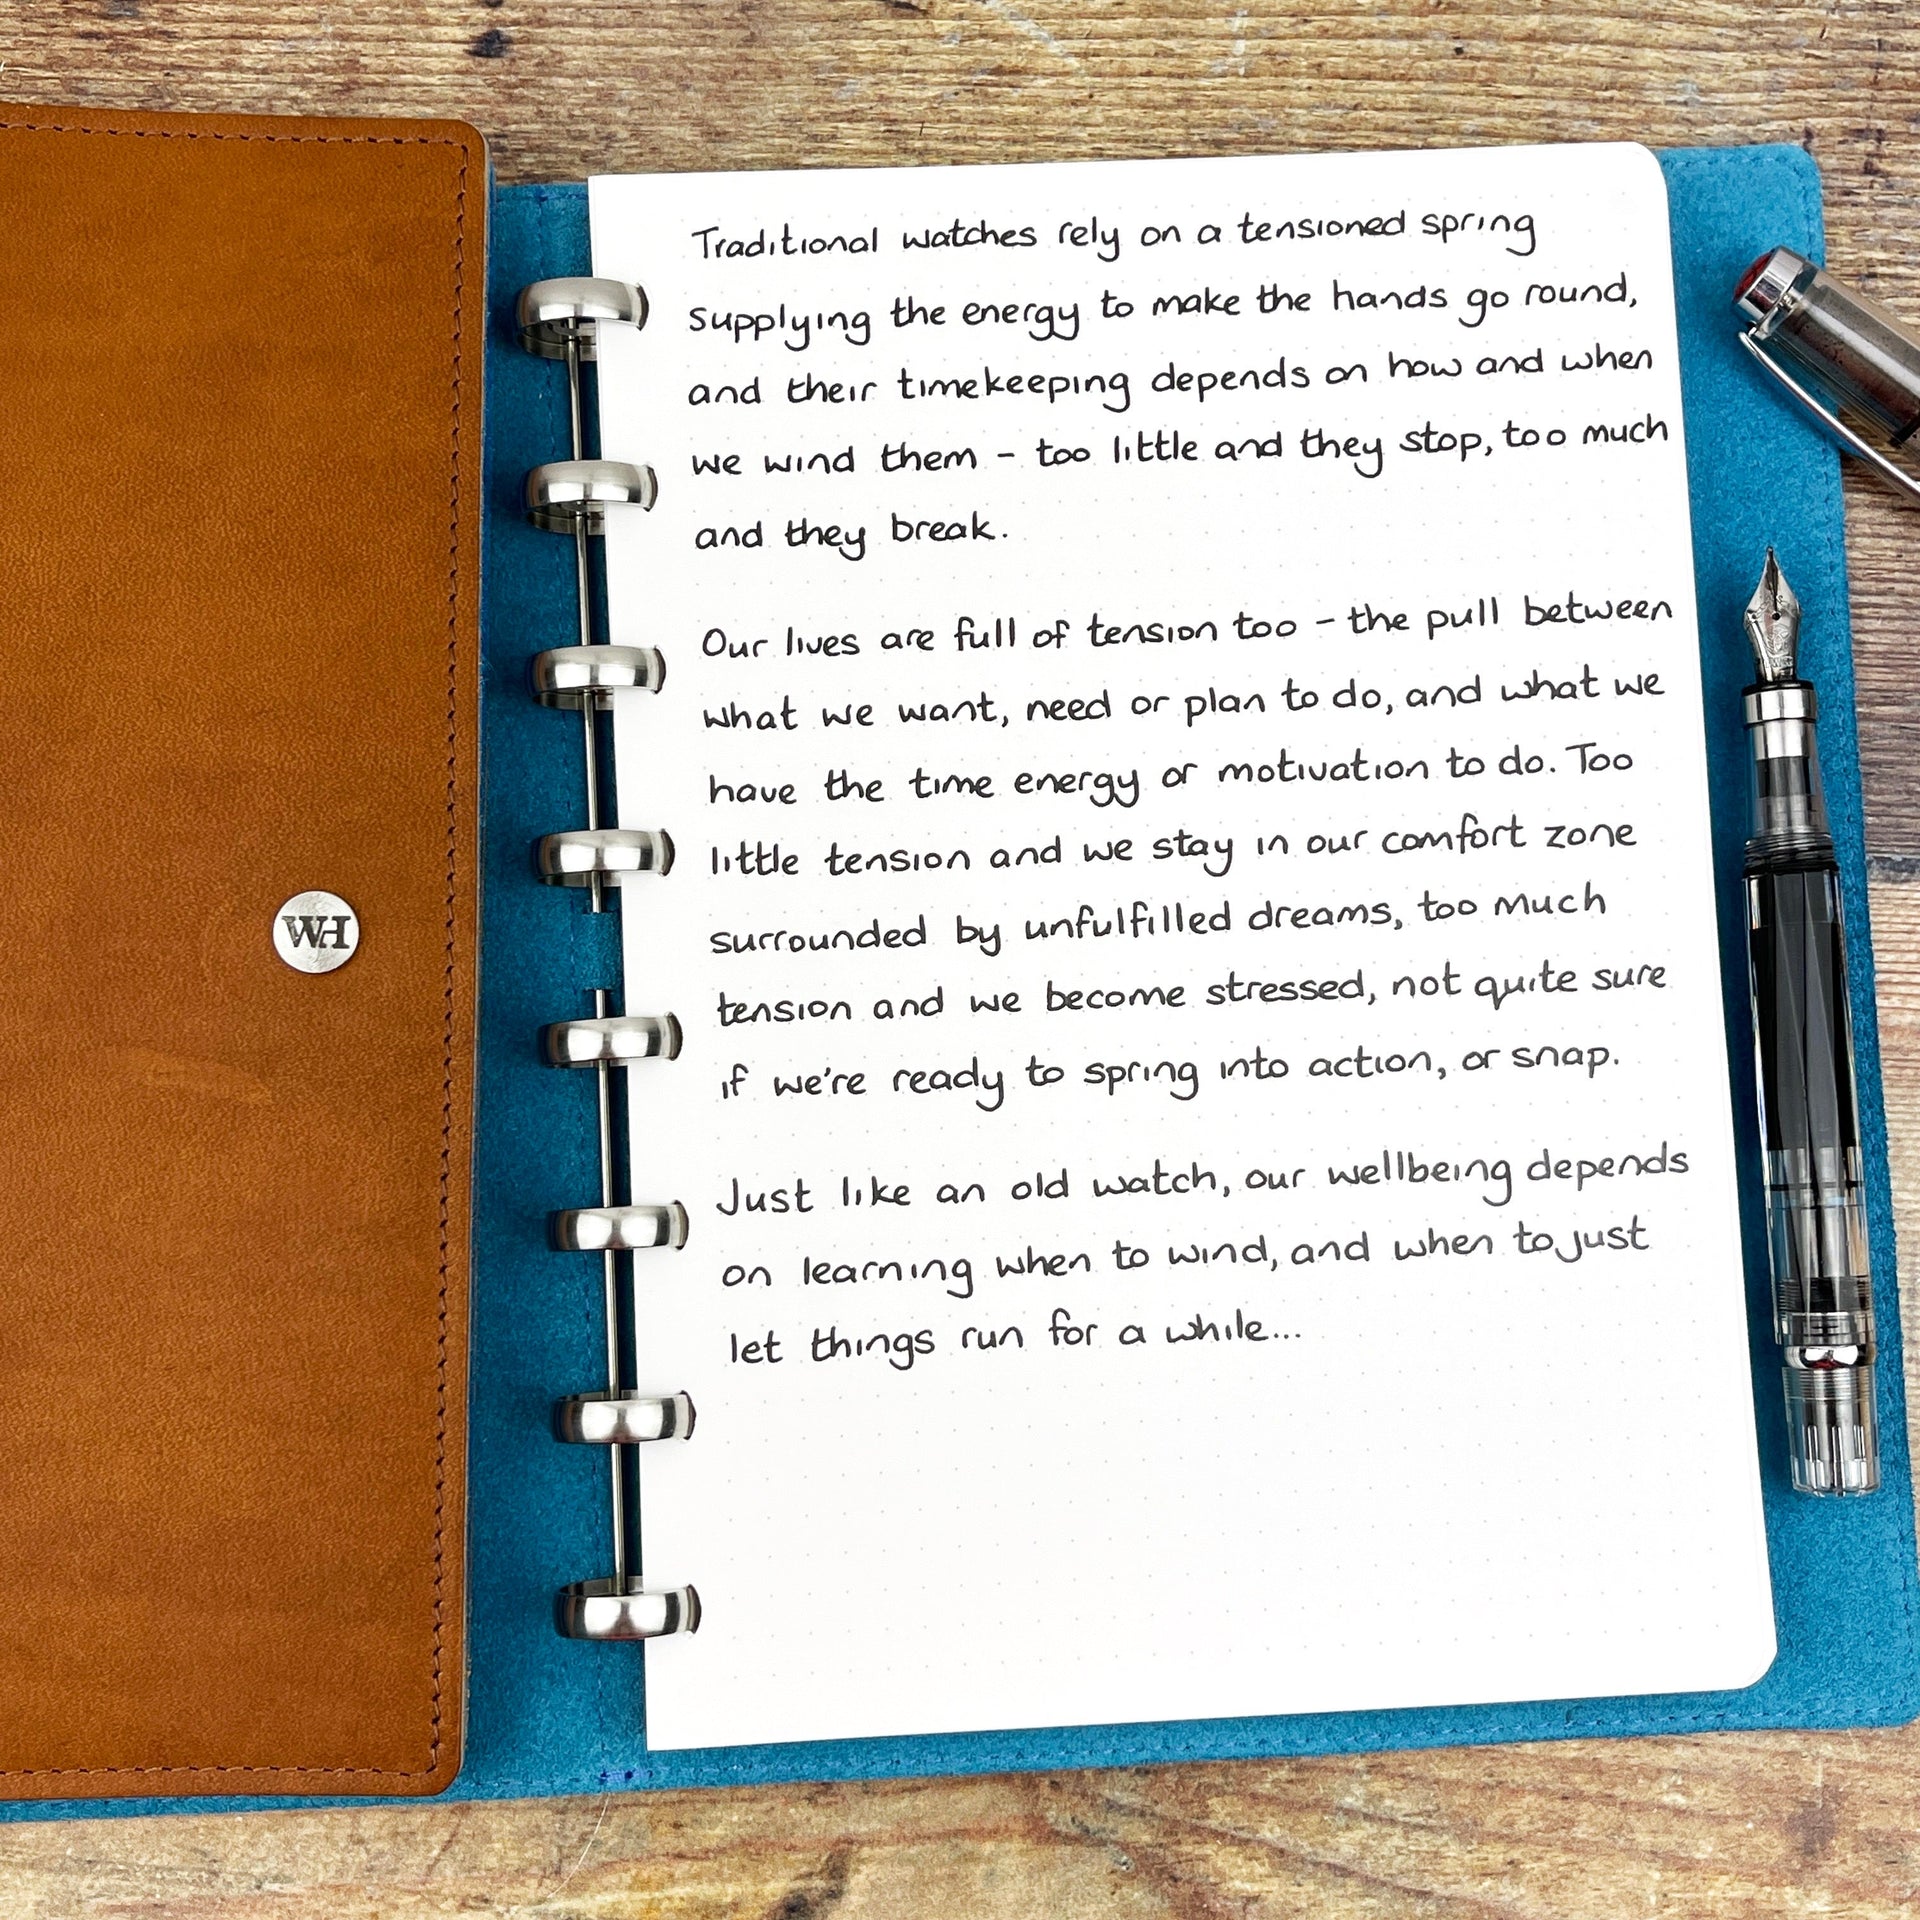 WH
Traditional watches rely on a tensioned spring
supplying the energy to make the hands go round,
and their timekeeping depends on how and when
we wind them - too little and they stop, too much
and they break.
Our lives are full of tension too - the pull between
what we want, need or plan to do, and what we
have the time energy or motivation to do. Too
little tension and we stay in our comfort zone
surrounded by unfulfilled dreams, too much
tension and we become stressed, not quite sure
if we're ready to spring into action, or snap.
Just like an old watch, our wellbeing depends
on learning when to wind, and when to just
let things run for a while...